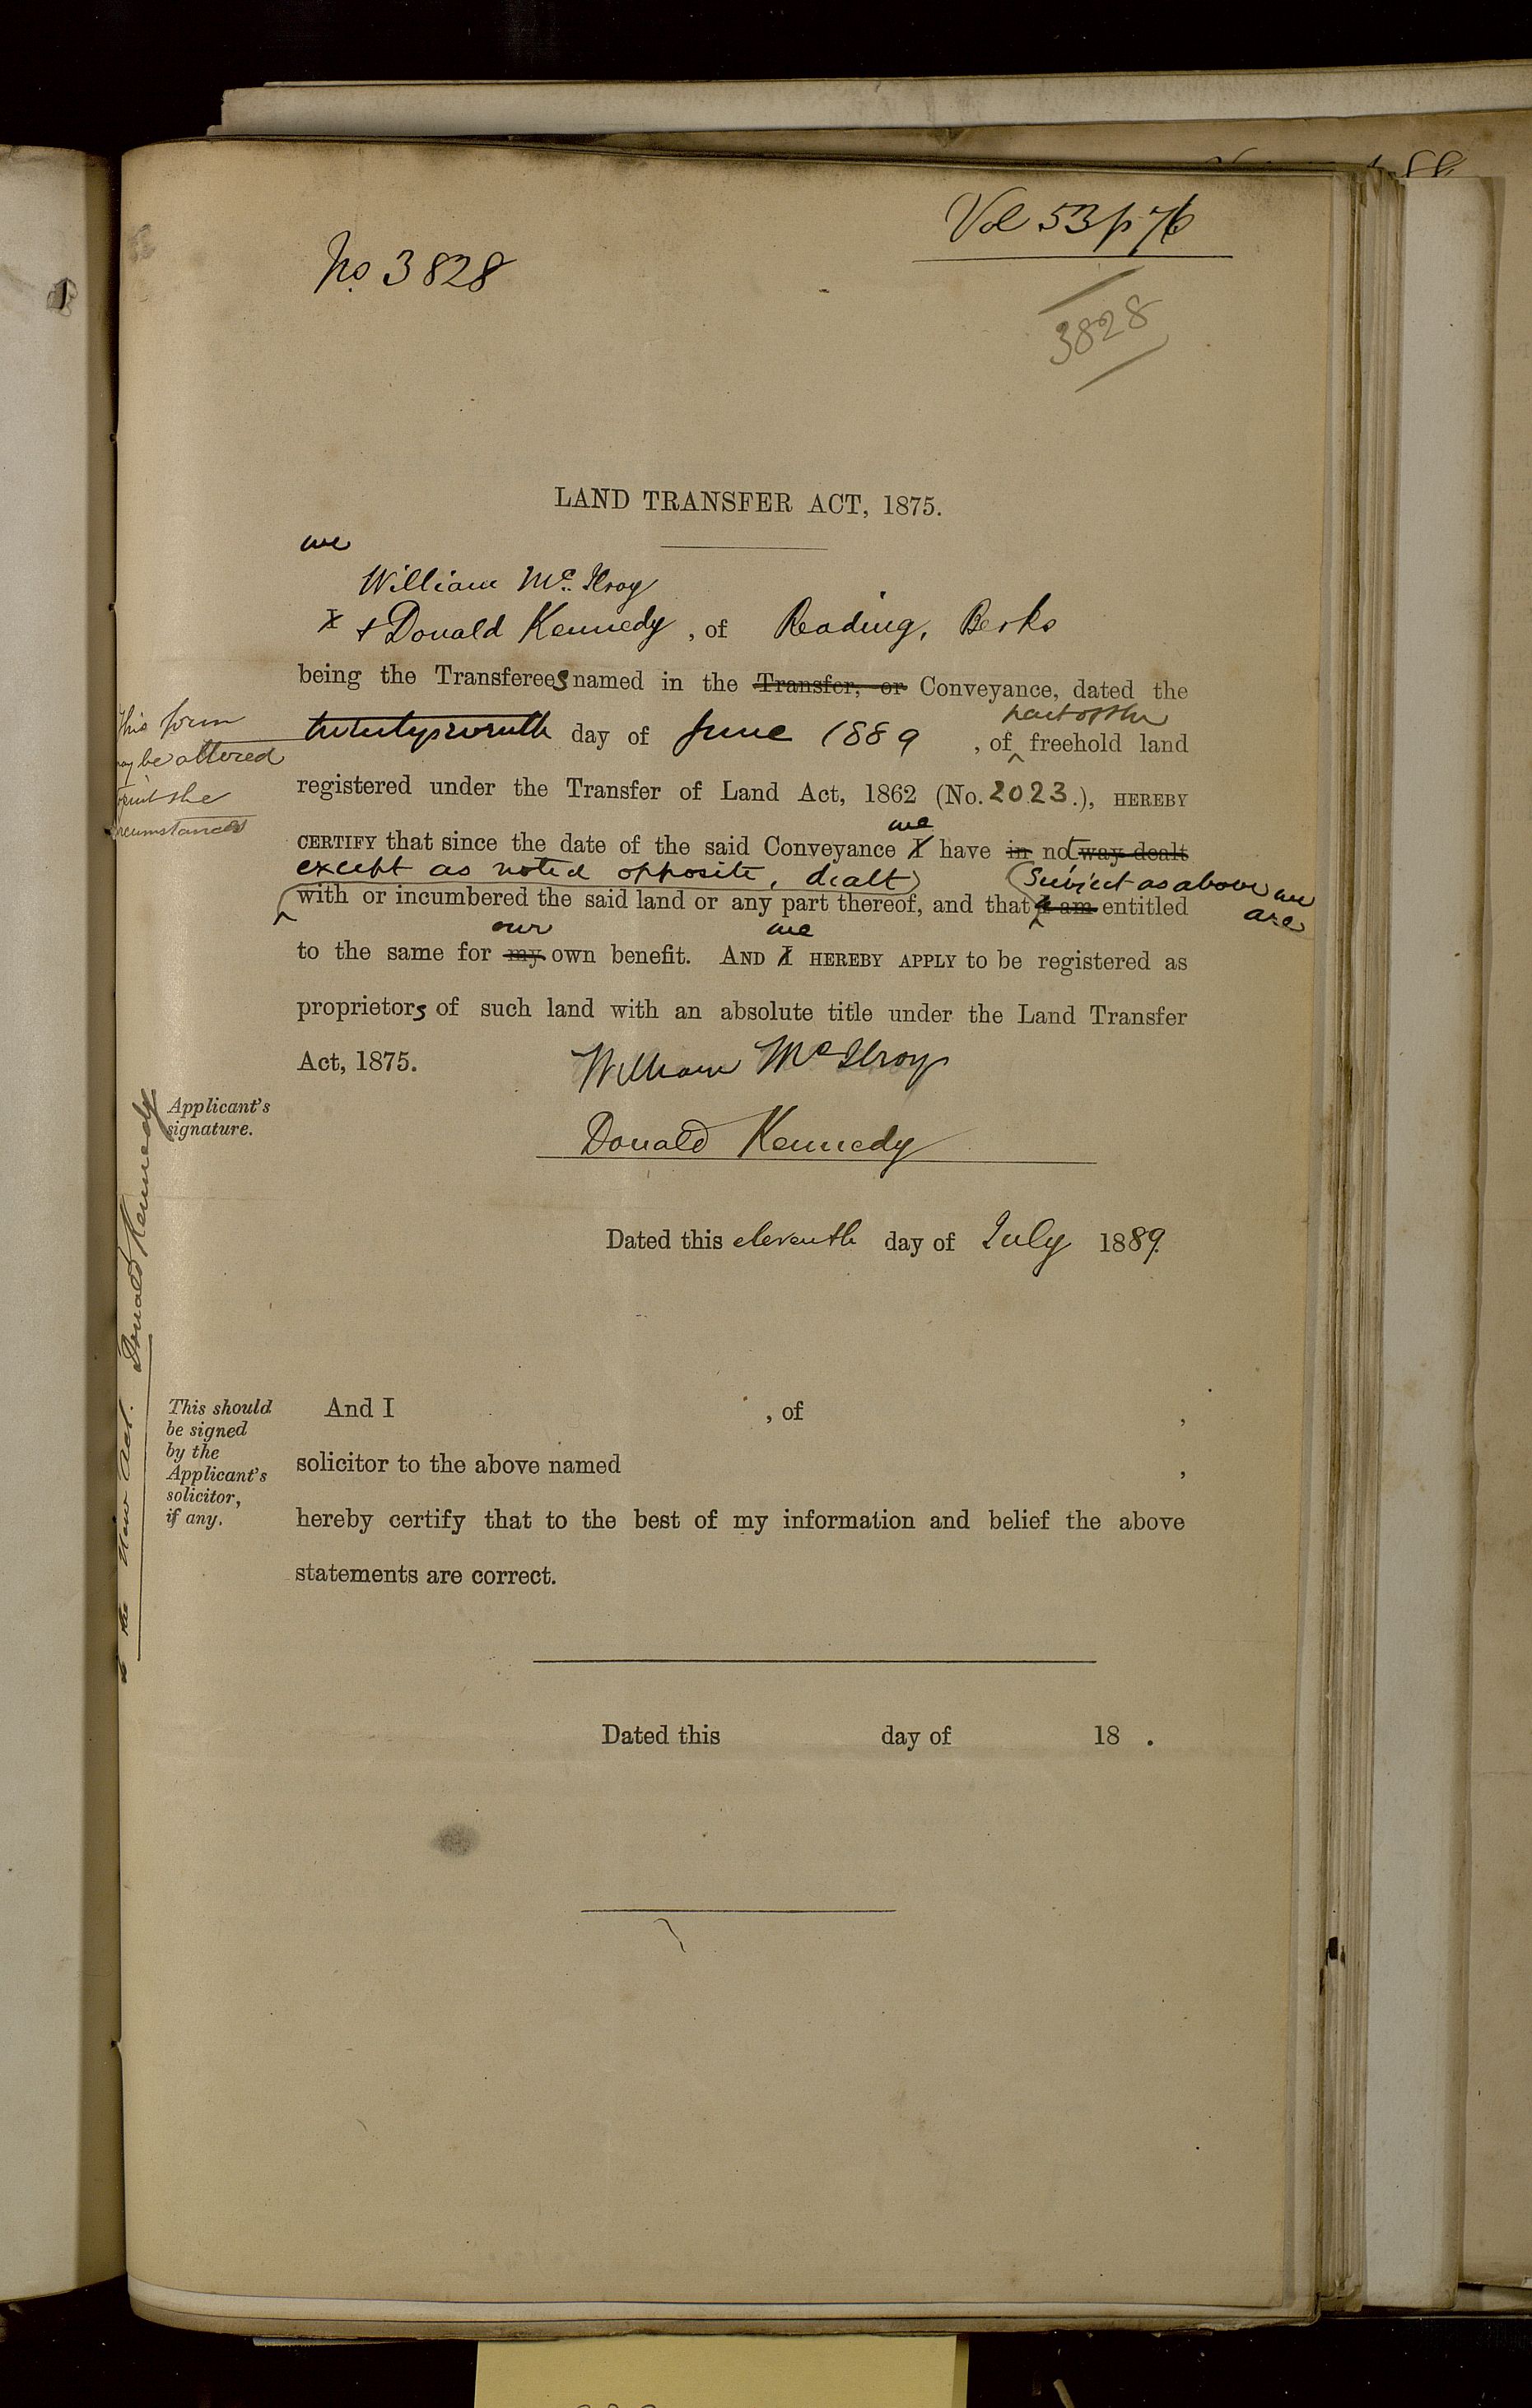 Vol 53 p 76
No 3828
3828
LAND TRANSFER ACT, 1875.
we
William Mc. Ilroy
I + Donald Kennedy, of Reading, Berks
being the Transferees named in the Transfer, or Conveyance, dated the
part of the
twentyseventh day of June 1889 , of ^ freehold land
registered under the Transfer of Land Act, 1862 (No. 2023.), HEREBY
we
CERTIFY that since the date of the said Conveyance I have in not way dealt
except as noted opposite, dealt) (Subject as above we
with or incumbered the said land or any part thereof, and that I am entitled are
our we
to the same for my own benefit. AND I HEREBY APPLY to be registered as
proprietors of such land with an absolute title under the Land Transfer
Act, 1875. William Mc Ilroy
Donald Kennedy
Dated this eleventh day of July 1889.
And I , of ,
solicitor to the above named ,
hereby certify that to the best of my information and belief the above
statements are correct.
Dated this day of 18 .
This form
be altered
the
Applicant's
signature.
This should
be signed
by the
Applicant's
solicitor,
if any.
the New Act. Donald Kennedy